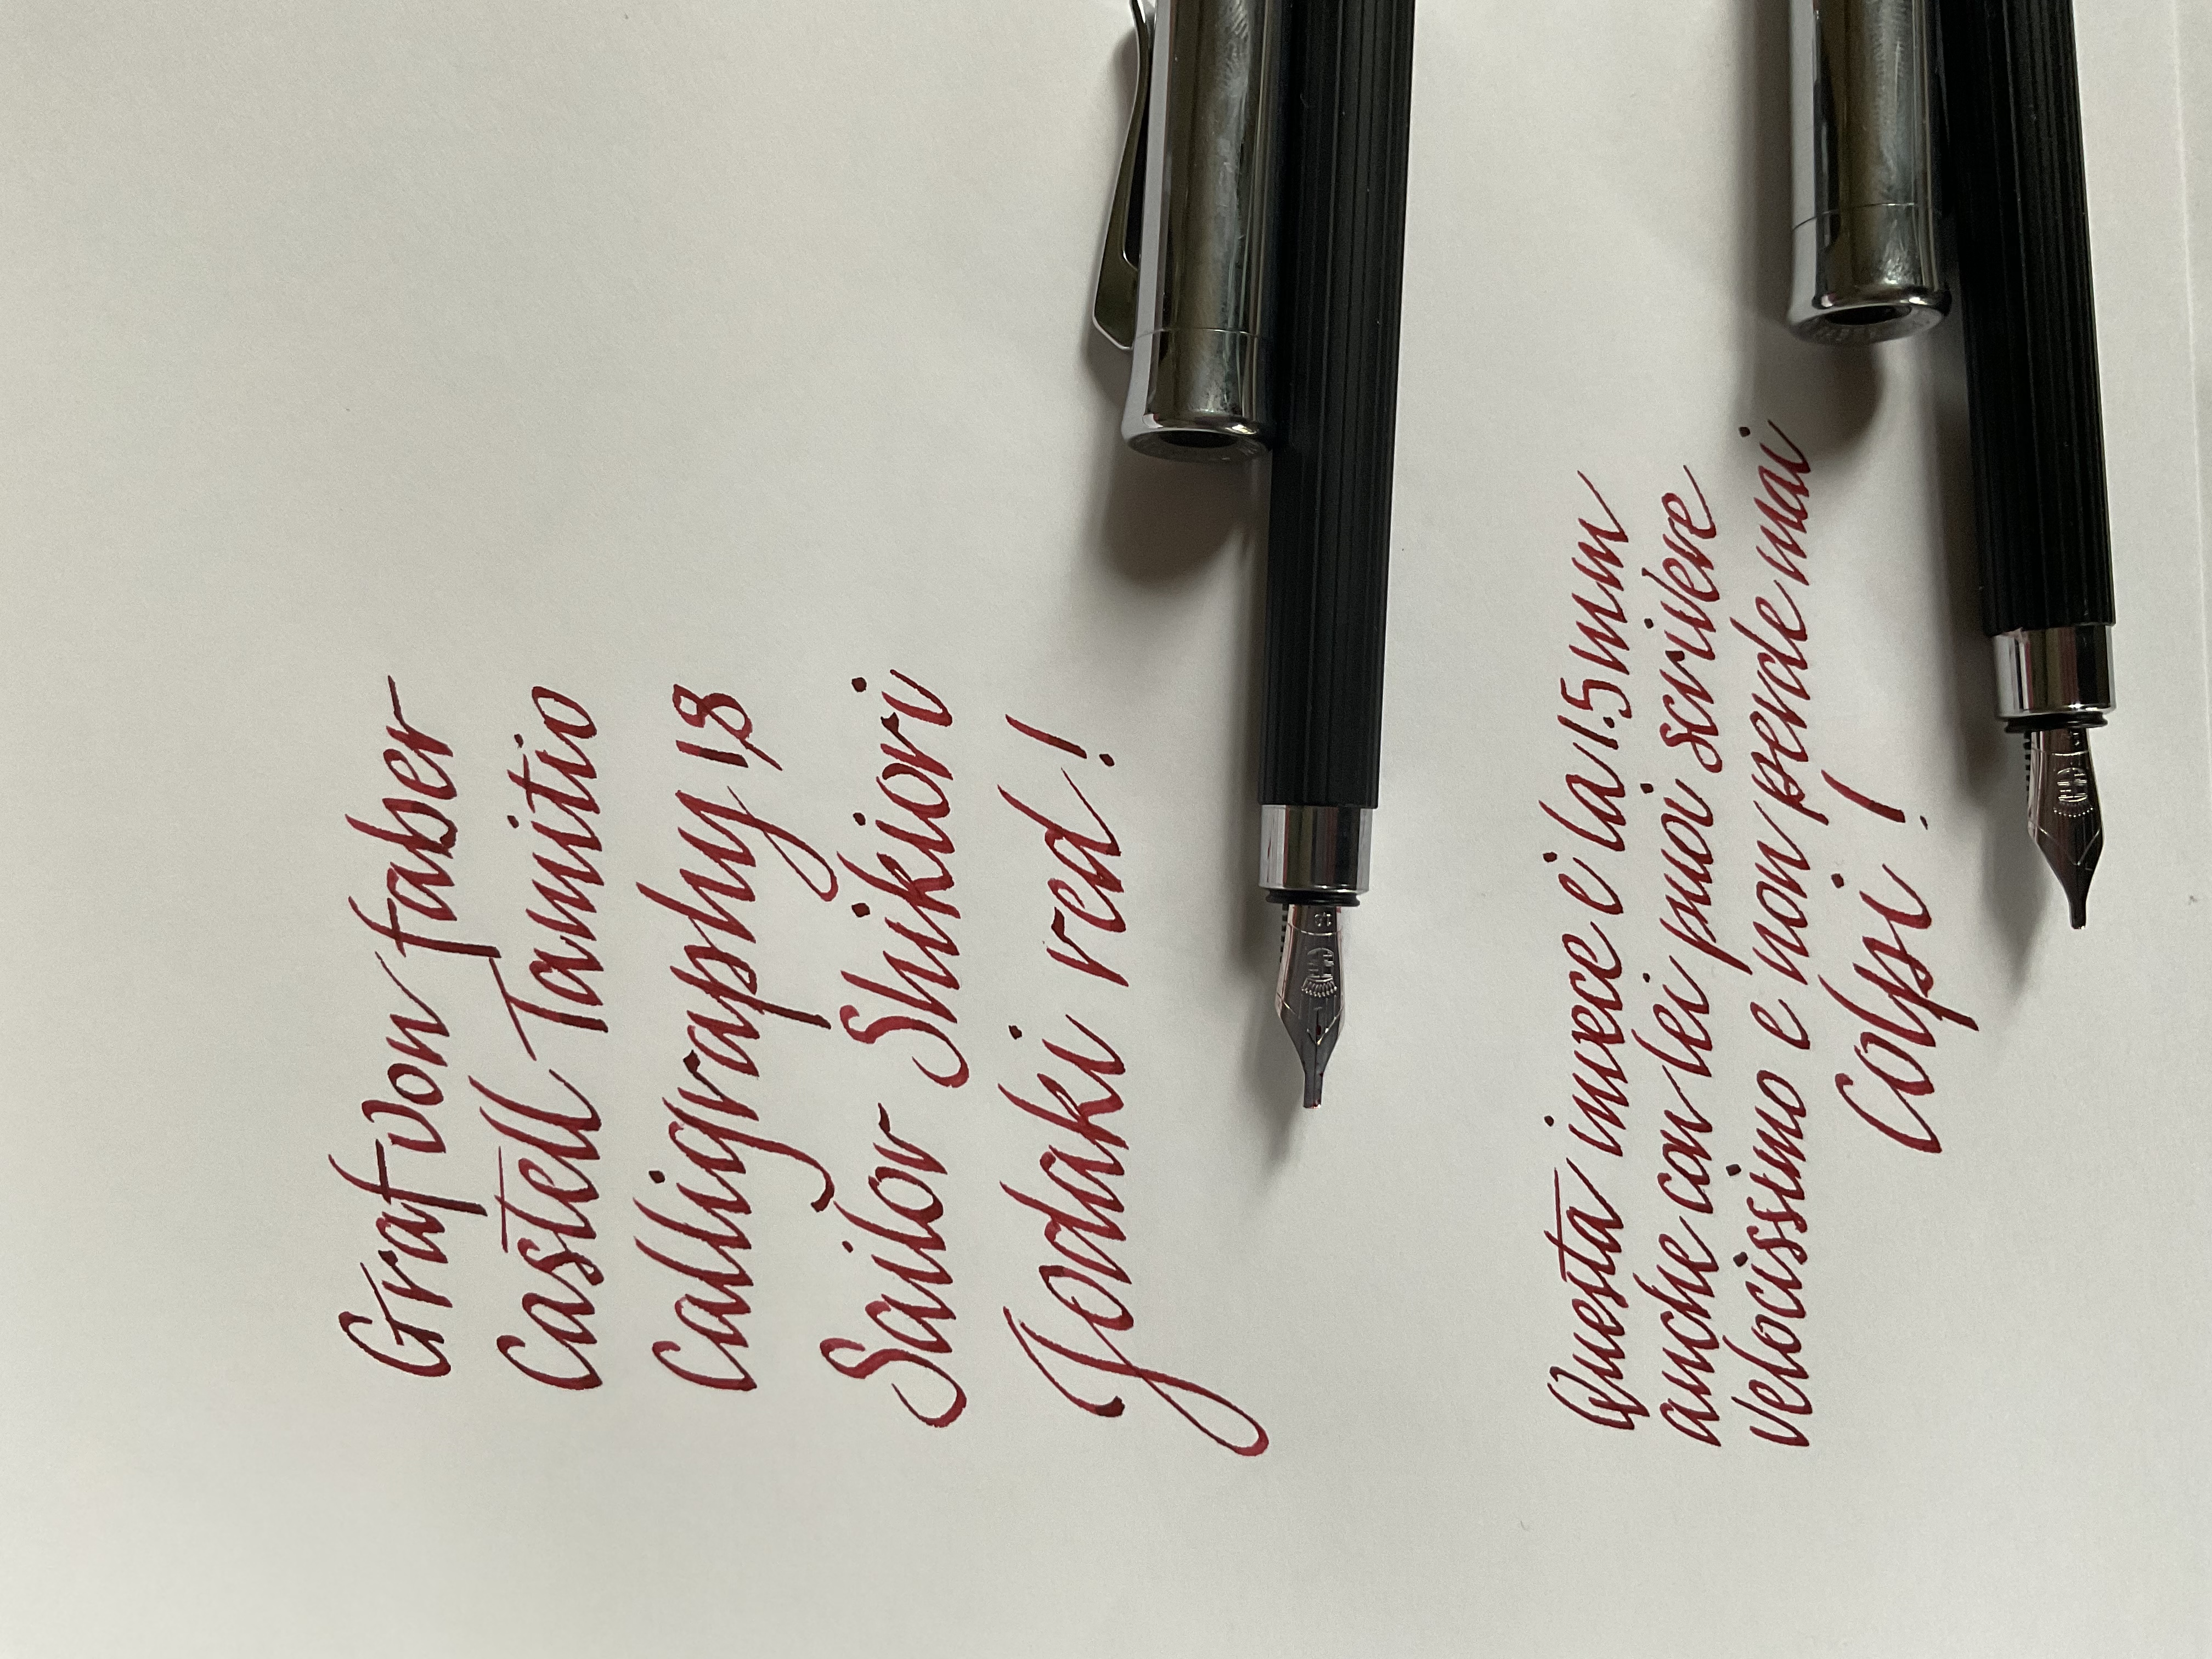 Graf von Faber
Castell Tamitio
Calligraphy 1,3
Sailor Shikiori
Jodaki red!
Questa invece è la 1.5 mm
anche con lei puoi scrivere
velocissimo e non perde mai
Colpi!